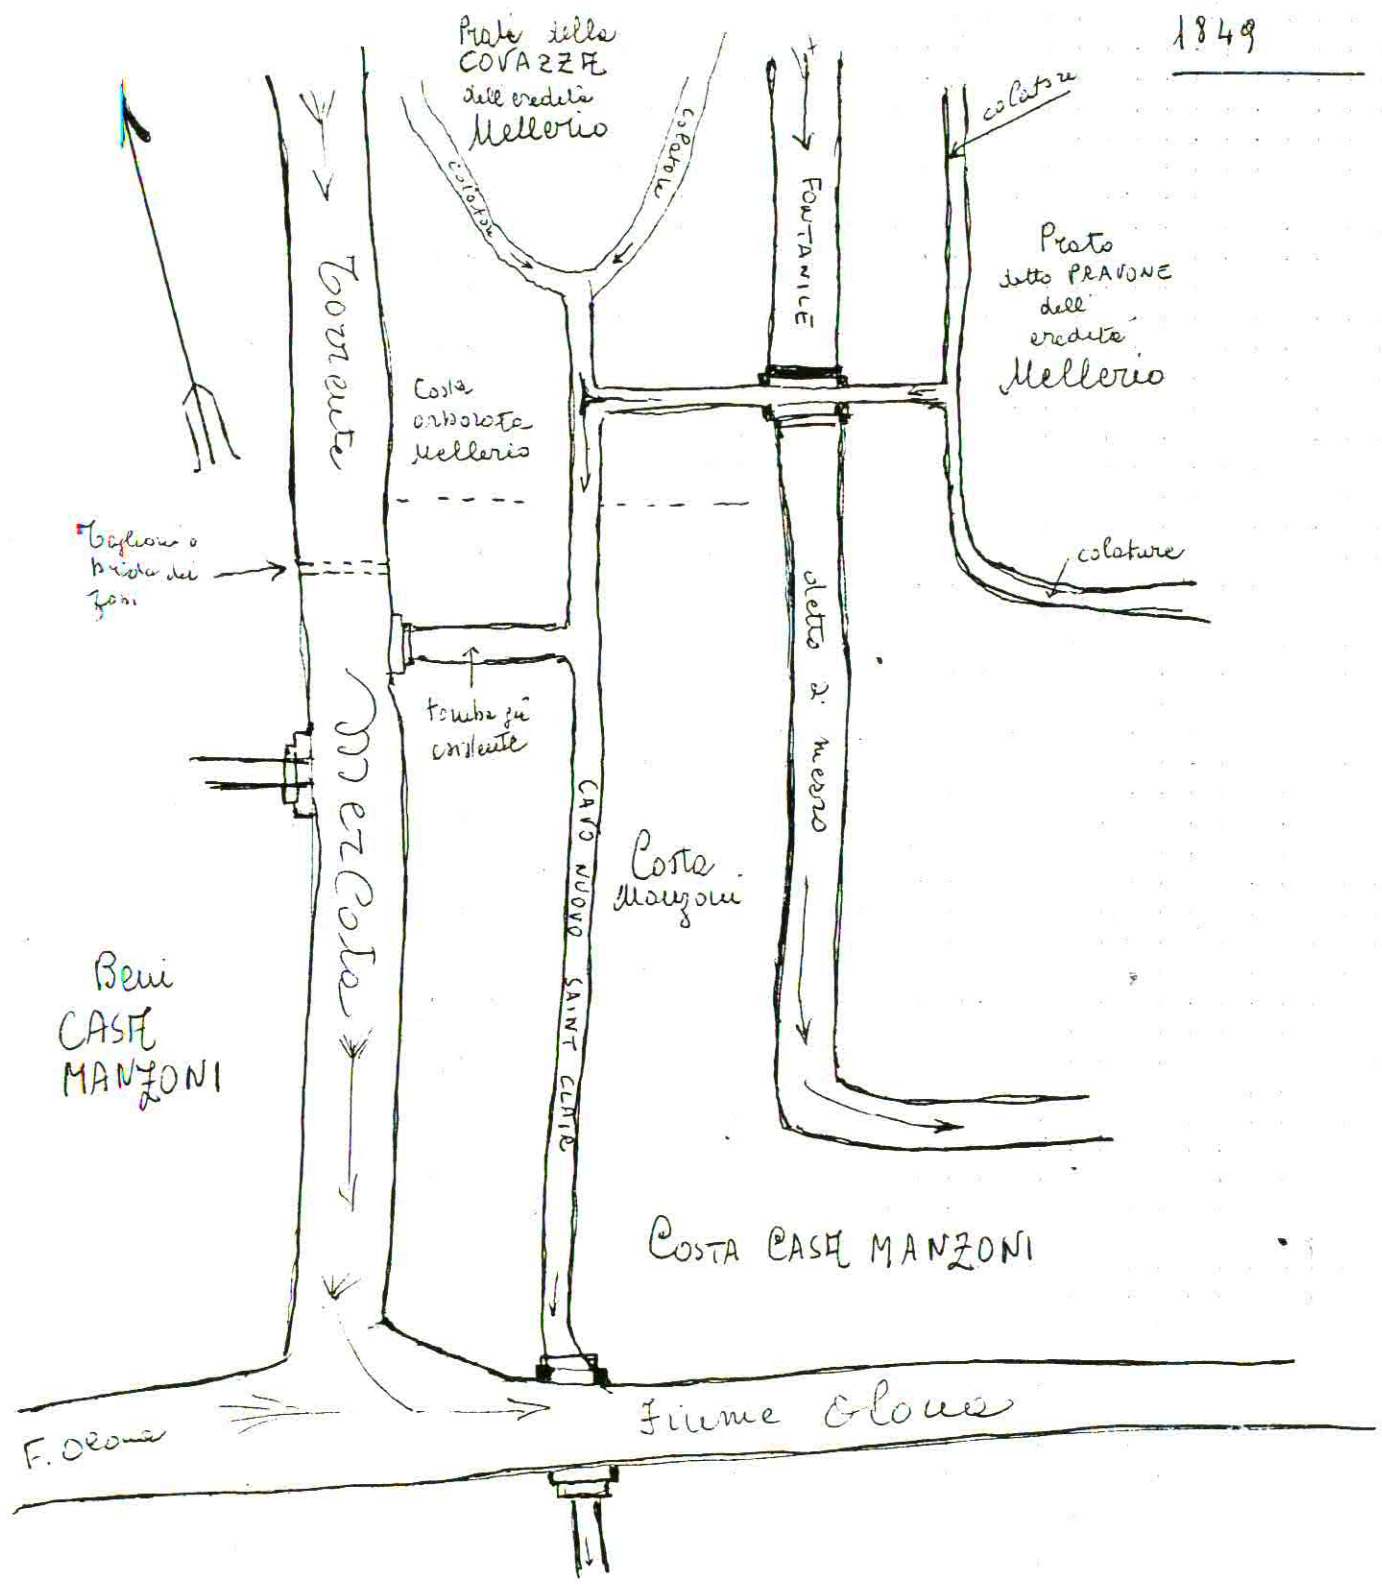 1849
Prato della
COVAZZA
dell'eredità
Mellerio
colatore
colatore
colatore
FONTANILE
Prato
detto PRAVONE
dell'
eredità
Mellerio
Torrente
Costa
arborata
Mellerio
colature
detto di mezzo
tomba già
esistente
Merlata
CAVO NUOVO SAINT CLAIR
Costa
Manzoni
Beni
CASA
MANZONI
COSTA CASA MANZONI
Fiume Olona
F. Olona